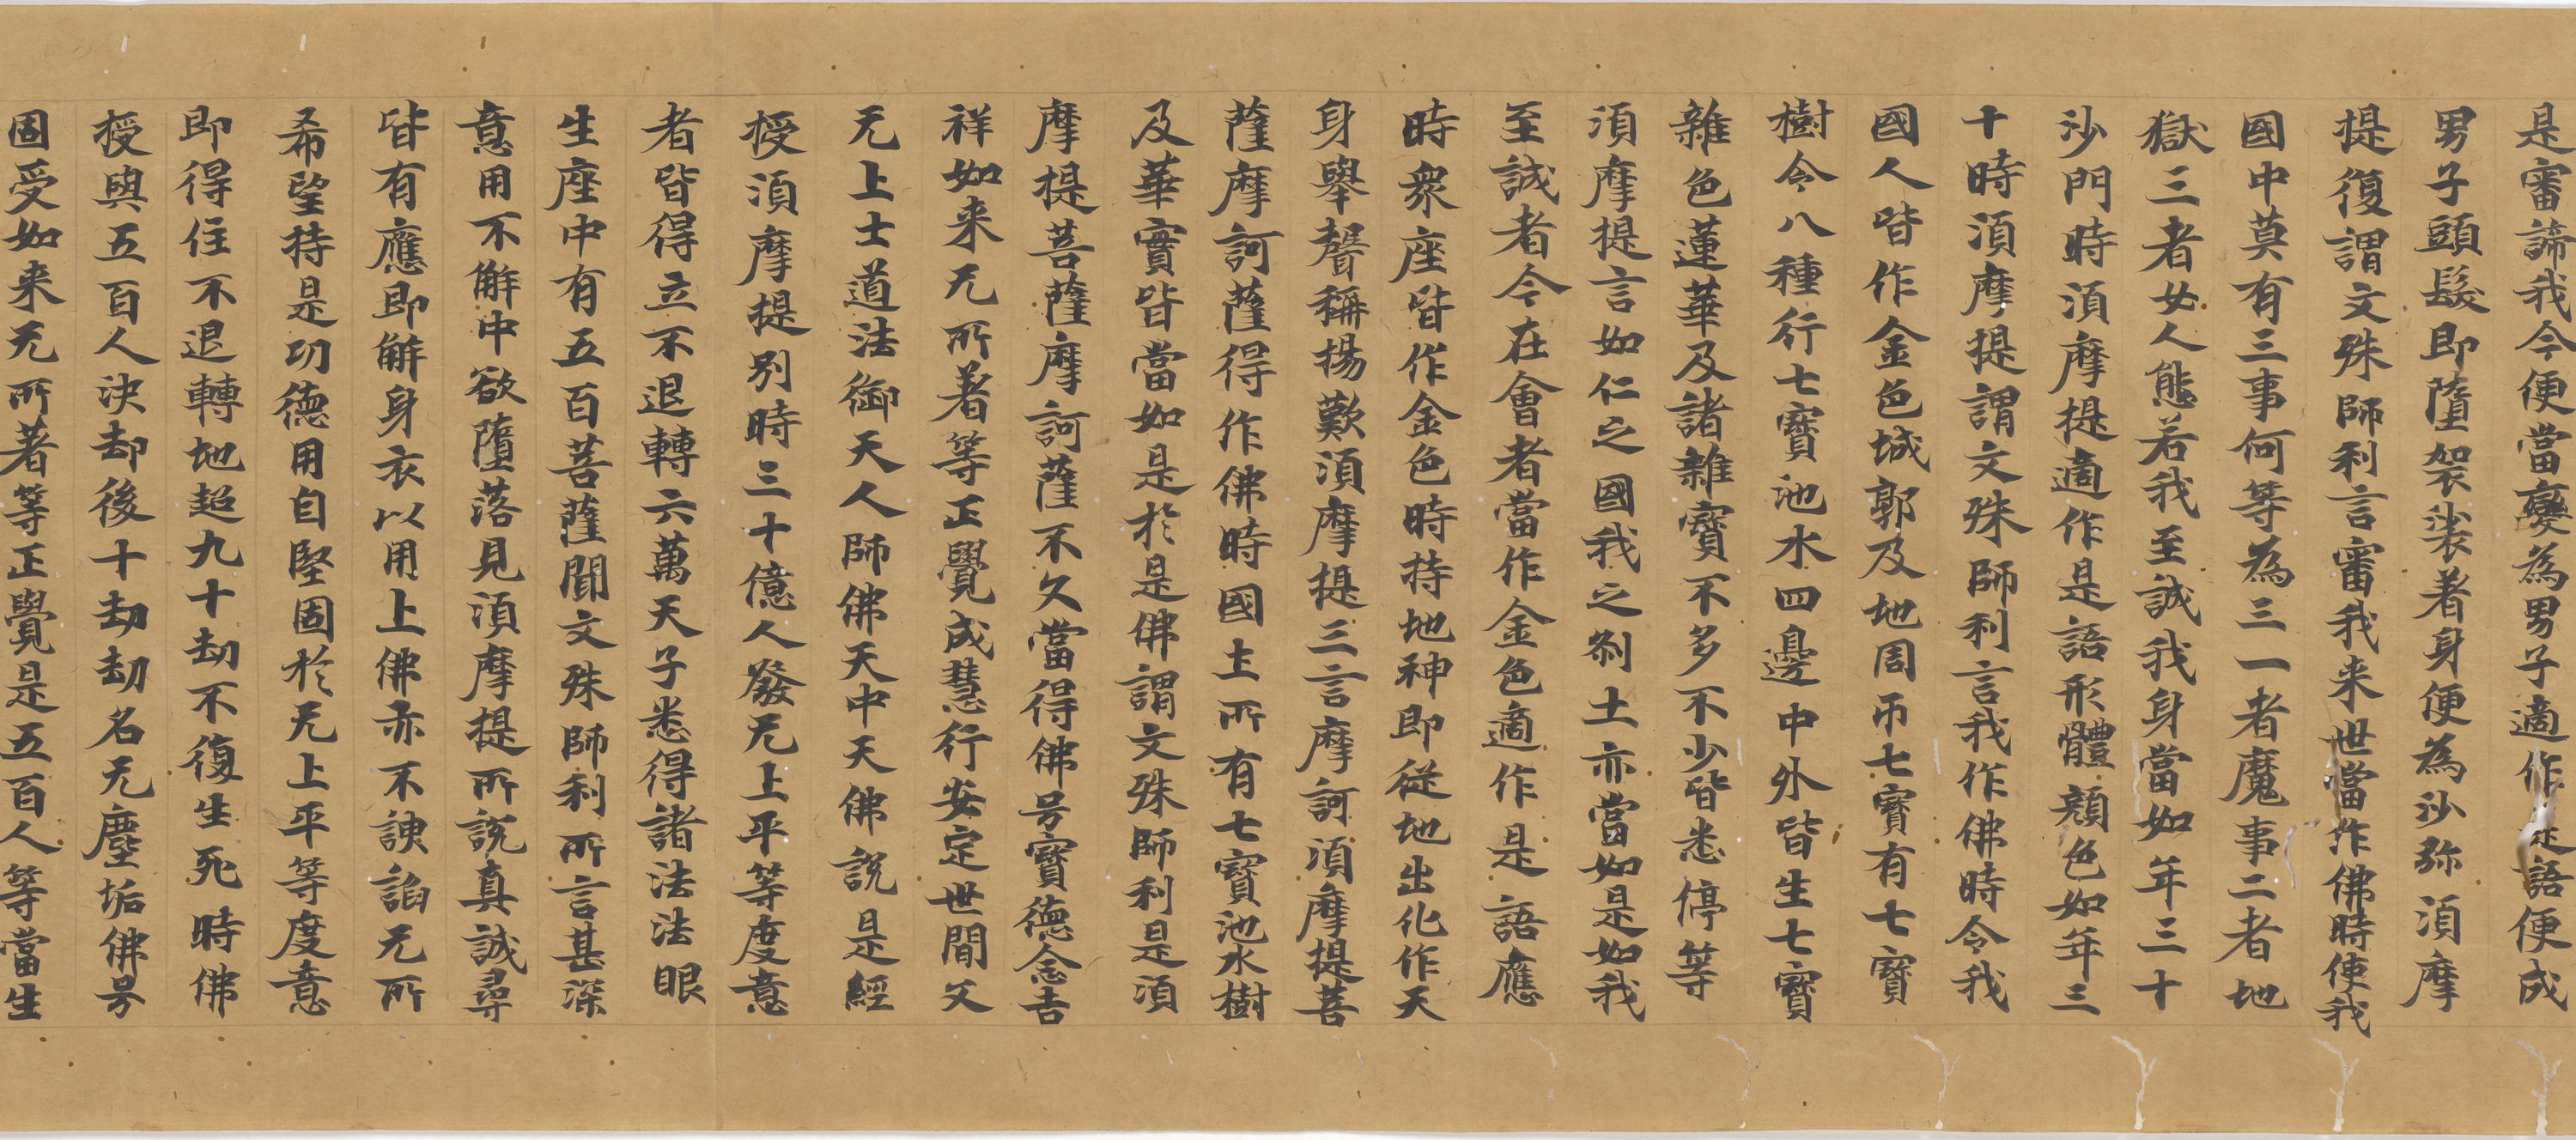 是審諦我今便當變為男子適作是語便成
男子頭髮即墮袈裟著身便為沙弥湏摩
提復謂文殊師利言審我来世當作佛時使我
國中莫有三事何等為三一者魔事二者地
獄三者女人態若我至誠我身當如年三十
沙門時湏摩提適作是語形體顏色如年三
十時湏摩提謂文殊師利言我作佛時令我
國人皆作金色城郭及地周帀七寶有七寶
樹令八種行七寶池水四邊中外皆生七寶
雜色蓮華及諸雜寶不多不少皆悉停等
湏摩提言如仁之國我之剎土亦當如是如我
至誠者今在會者當作金色適作是語應
時衆座皆作金色時持地神即従地出化作天
身舉聲稱揚歎湏摩提三言摩訶湏摩提菩
薩摩訶薩得作佛時國土所有七寶池水樹
及華實皆當如是於是佛謂文殊師利是湏
摩提菩薩摩訶薩不久當得佛号寶德念吉
祥如来无所著等正覺成慧行安定世間父
无上士道法御天人師佛天中天佛說是經
授湏摩提別時三十億人發无上平等度意
者皆得立不退轉六萬天子悉得諸法法眼
生座中有五百菩薩聞文殊師利所言甚深
意用不解中欲墮落見湏摩提所說真誠尋
皆有應即解身衣以用上佛亦不諛諂无所
希望持是功德用自堅固於无上平等度意
即得住不退轉地超九十劫不復生死時佛
授與五百人決却後十劫劫名无塵垢佛号
固受如来无所著等正覺是五百人等當生